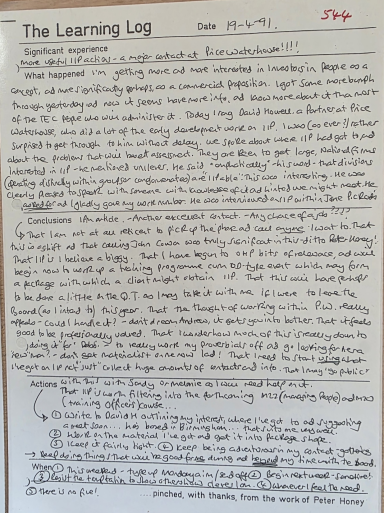 544
The Learning Log Date 19-4-91.
Significant experience
More useful IIP action - a major contact at Price Waterhouse!!!!
What happened I'm getting more and more interested in Investors in People as a
concept, and more significantly perhaps, as a commercial proposition. I got some more bumph
through yesterday and now it seems have more info. and know more about it than most
of the TEC people who will administer it. Today I rang David Howell, a Partner at Price
Waterhouse, who did a lot of the early development work on IIP. I was (as ever!) rather
surprised to get through to him without delay. We spoke about where IIP had got to and
about the problems that will beset assessment. They are keen to get large, National firms
interested in IIP - he mentioned Unilever. He said - emphatically - his word - that divisions
(operating divisions within a group or conglomerate) are IIP'able! This was interesting. He was
clearly pleased to speak with someone with knowledge of it and hinted we might meet. He
asked for and I gladly gave my work number. He was interviewed on IIP within
Conclusions IPM article. - Another excellent contact - Any chance of a job????
That I am not at all reticent to pick up the phone and call anyone I want to. That
this is a gift and that calling John Cowan was truly significant in this - ditto Peter Honey!
That IIP is I believe a biggy. That I have begun to OHP bits of relevance, and will
begin now to work up a training programme cum OD-type event which may form
a package with which a client might obtain IIP. That this will have perhaps
to be done a little on the Q.T. as I may take it with me if I were to leave the
Board (as I intend to) this year. That the thought of working within P.W. really
appeals - could I hack it? - don't dream Andrew, it gets you in to bother. That it feels
good to be professionally valued. That I wonder how much of this is really down to
doing it for Debs - to really work my proverbials off and go looking for her a
new 'man'? - don't get materialist on me now lad! That I need to start using what
I've got on IIP not just collect huge amounts of contacts and info. That I may 'go public'
Actions with this with Sandy or Melanie as I will need help on it.
That IIP is worth filtering into the forthcoming M22 (Managing People) and M20
(training Officers) course...
① Write to David H outlining my interest, where I've got to and suggesting
a meet soon... he's based in Birmingham... that suits me and well
② Work on the material I've got and get it into package shape.
③ Keep it fairly tight. ④ Keep being adventurous in my contact-getting
→ Keep doing things that will be good for us during and beyond my time with the Board.
When ① This weekend - type up Monday a.m / send off ② Begin next week
④ whenever I feel the need.
⑤ There is no fuel! ....pinched, with thanks, from the work of Peter Honey